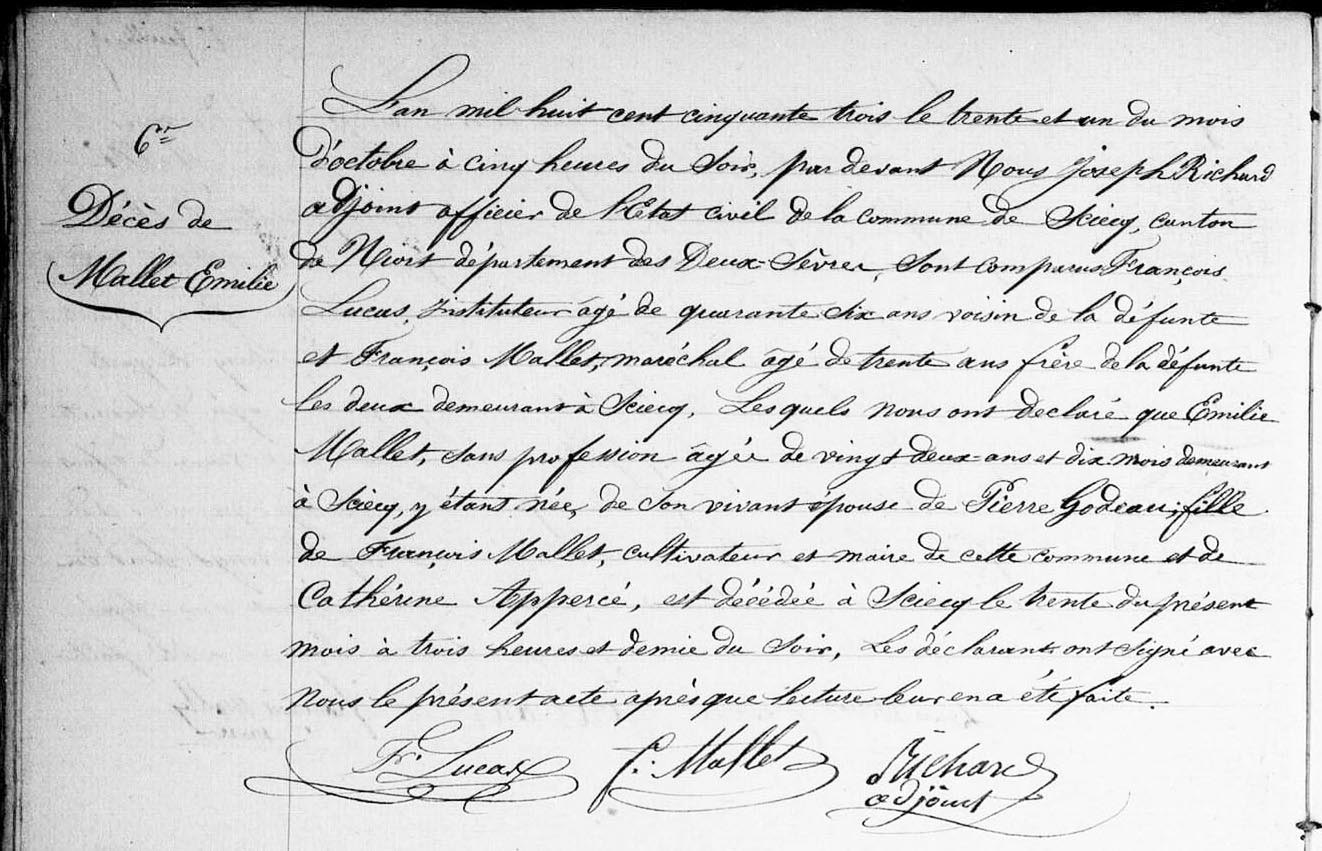 6e
Décès de
Mallet Emilie
L'an mil huit cent cinquante trois le trente et un du mois
d'octobre à cinq heures du soir, par devant Nous Joseph Richard
adjoint officier de l'Etat civil de la commune de Sciecq, canton
de Niort département des Deux-Sèvres, sont comparus François
Lucas, Instituteur âgé de quarante six ans voisin de la défunte
et François Mallet, maréchal âgé de trente ans frère de la défunte
les deux demeurant à Sciecq. Lesquels nous ont declaré que Emilie
Mallet, sans profession âgée de vingt deux ans et dix mois demeurant
à Sciecq, y étant née, de son vivant épouse de Pierre Godeau; fille
de François Mallet, cultivateur et maire de cette commune et de
Cathérine Appercé, est décédée à Sciecq le trente du présent
mois à trois heures et demie du soir, Les déclarants ont signé avec
nous le présent acte après que lecture leur en a été faite.
Fs Lucas f. Mallet Richard
adjoint